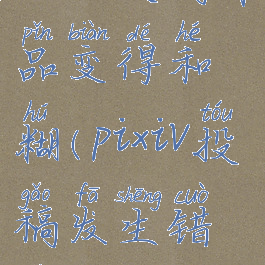 pǐn biàn dé hé
品变得和
hú tóu
糊(pixiv投
gǎo fā shēng cuò
稿发生错